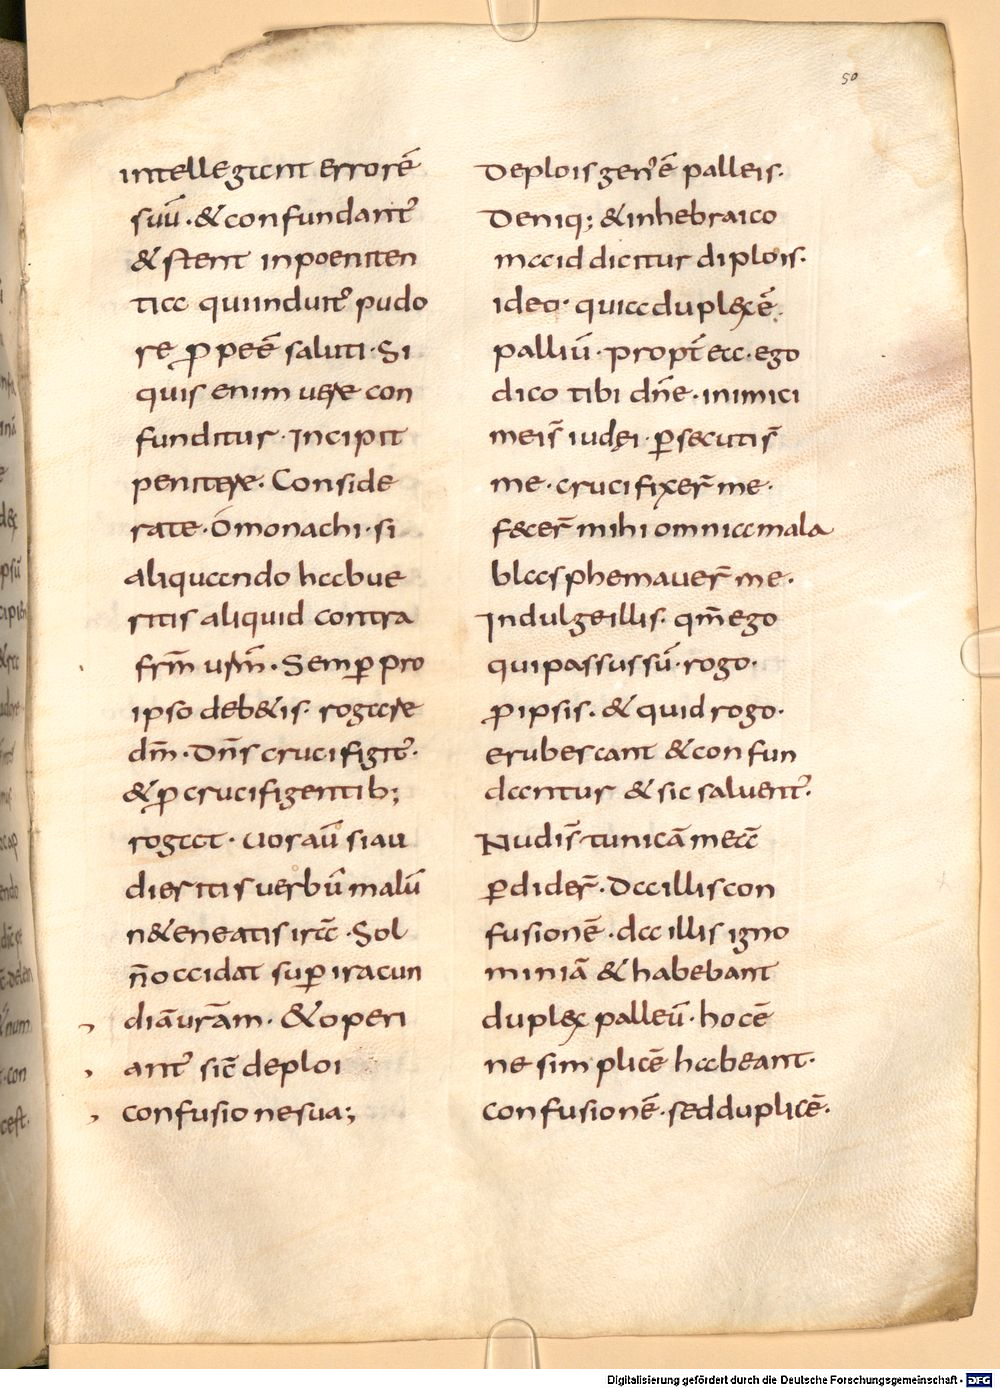 50
intellegant errorē
suū · & confundant᷑
& stent inpoeniten
tia quiinduunt᷑ pudo
re ꝓpeē saluti · Si
quis enim uere con
funditur · Incipit
penitere · Conside
rate · O monachi · si
aliquando habue
ritis aliquid contra
frm̄ urm̄ · Semꝑ pro
ipso deb&is · rogare
dm̄ · Dn̄s crucifigit᷑ ·
& ꝓ crucifigentib;
rogat · Uos aū siau
dieritis uerbū malū
n& eneatis irā · Sol
n̄ occidat suꝑ iracun
diā urām · & operi
ant᷑ sic̄ deploi
confusione sua;
Deplois gen᷑ ē palleis ·
Deniq; & inhebraico
maiddicitur diplois ·
ideo · quia duplex ē
palliū · propt̄ ea · ego
dico tibi dn̄e · inimici
meis̄ iudęi · ꝑsecutis̄
me · crucifixer̄ me ·
fecer̄ mihi omnia mala
blasphemauer̄ me ·
Indulge illis · qm̄ ego
qui passus sū · rogo ·
ꝓ ipsis · & quid rogo ·
erubescant & confun
dantur & sic saluent᷑ ·
Nudis̄ tunicā meā
ꝑdider̄ · Da illis con
fusionē · da illis igno
miniā & habebant
duplex palleū · hoc ē
ne simplicē habeant ·
confusionē · sed duplicē ·
Digitalisierung gefördert durch die Deutsche Forschungsgemeinschaft - DFG